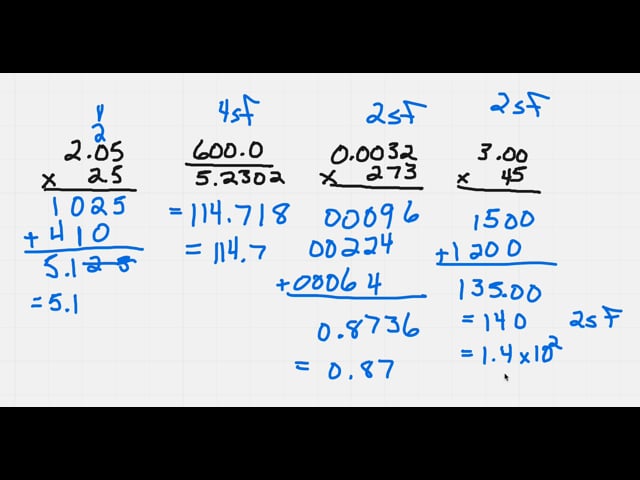 2
2.05
x 25
1025
+ 410
5.125
= 5.1
4sf
600.0
5.2302
= 114.718
= 114.7
2sf
0.0032
x 273
00096
00224
+00064
0.8736
= 0.87
2sf
3.00
x 45
1500
+1200
135.00
= 140 2sf
= 1.4 x 10²